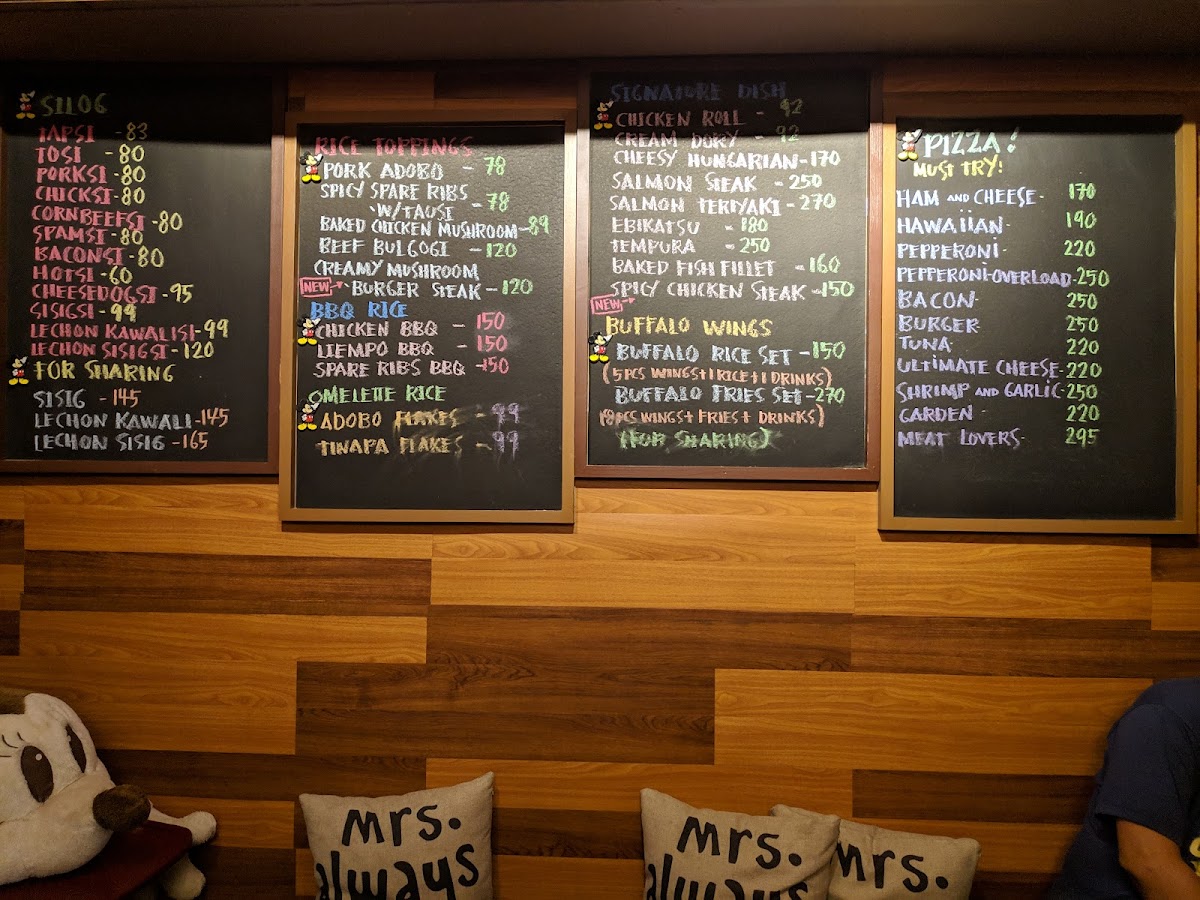 SILOG
TAPSI - 83
TOSI - 80
PORKSI - 80
CHICKSI - 80
CORNBEEFSI - 80
SPAMSI - 80
BACONSI - 80
HOTSI - 60
CHEESEDOGSI - 95
SISIGSI - 99
LECHON KAWALISI - 99
LECHON SISIGSI - 120
FOR SHARING
SISIG - 145
LECHON KAWALI - 145
LECHON SISIG - 165
RICE TOPPINGS
PORK ADOBO - 78
SPICY SPARE RIBS
W/TAUSI - 78
BAKED CHICKEN MUSHROOM - 89
BEEF BULGOGI - 120
CREAMY MUSHROOM
NEW BURGER STEAK - 120
BBQ RICE
CHICKEN BBQ - 150
LIEMPO BBQ - 150
SPARE RIBS BBQ - 150
OMELETTE RICE
ADOBO FLAKES - 99
TINAPA FLAKES - 99
SIGNATURE DISH
CHICKEN ROLL - 92
CREAM DORY - 92
CHEESY HUNGARIAN - 170
SALMON STEAK - 250
SALMON TERIYAKI - 270
EBIKATSU - 180
TEMPURA - 250
BAKED FISH FILLET - 160
SPICY CHICKEN STEAK - 150
NEW
BUFFALO WINGS
BUFFALO RICE SET - 150
(5PCS WINGS + 1 RICE + 1 DRINKS)
BUFFALO FRIES SET - 270
(8PCS WINGS + FRIES + DRINKS)
(FOR SHARING)
PIZZA!
MUST TRY!
HAM AND CHEESE - 170
HAWAIIAN - 190
PEPPERONI - 220
PEPPERONI-OVERLOAD - 250
BACON - 250
BURGER - 250
TUNA - 220
ULTIMATE CHEESE - 220
SHRIMP AND GARLIC - 250
GARDEN - 220
MEAT LOVERS - 295
mrs.
always
mrs.
always
mrs.